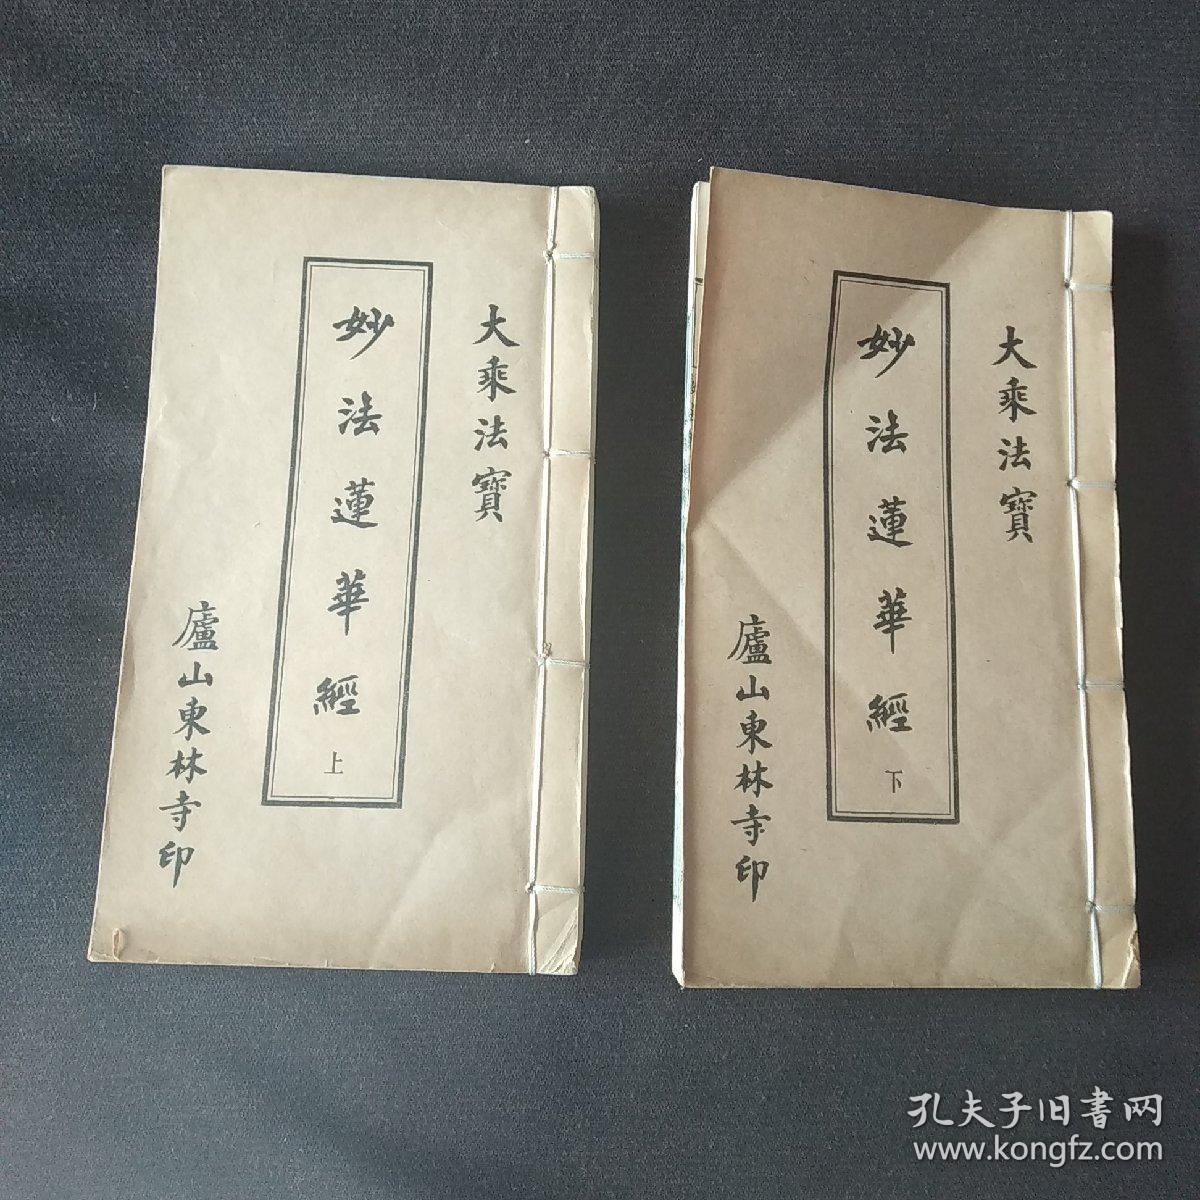 大乘法寶
妙法蓮華經 上
廬山東林寺印
大乘法寶
妙法蓮華經 下
廬山東林寺印
孔夫子旧書网
www.kongfz.com